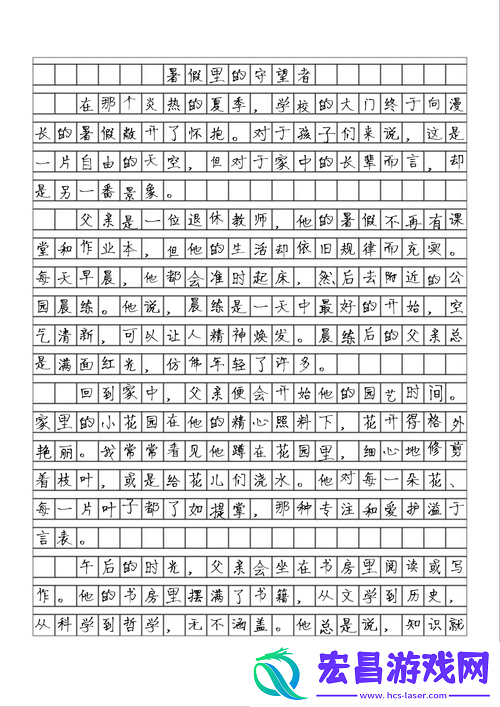 暑假里的守望者
在那个炎热的夏季，学校的大门终于向漫
长的暑假敞开了怀抱。对于孩子们来说，这是
一片自由的天空，但对于家中的长辈而言，却
是另一番景象。
父亲是一位退休教师，他的暑假不再有课
堂和作业本，但他的生活却依旧规律而充实。
每天早晨，他都会准时起床，然后去附近的公
园晨练。他说，晨练是一天中最好的开始，空
气清新，可以让人精神焕发。晨练后的父亲总
是满面红光，仿佛年轻了许多。
回到家中，父亲便会开始他的园艺时间。
家里的小花园在他的精心照料下，花开得格外
艳丽。我常常看见他蹲在花园里，细心地修剪
着枝叶，或是给花儿们浇水。他对每一朵花、
每一片叶子都了如指掌，那种专注和爱护溢于
言表。
午后的时光，父亲会坐在书房里阅读或写
作。他的书房里摆满了书籍，从文学到历史，
从科学到哲学，无不涵盖。他总是说，知识就
宏昌游戏网
www.hcs-laser.com